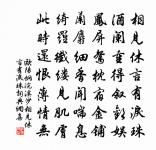 相見休言有淚珠
酒闌重得敘歡娛
鳳屏鴛枕宿金鋪
蘭麝細香聞喘息
綺羅纖縷見肌膚
此時還恨薄情無
歐陽炯浣溪沙相見休
言有淚珠詞典網